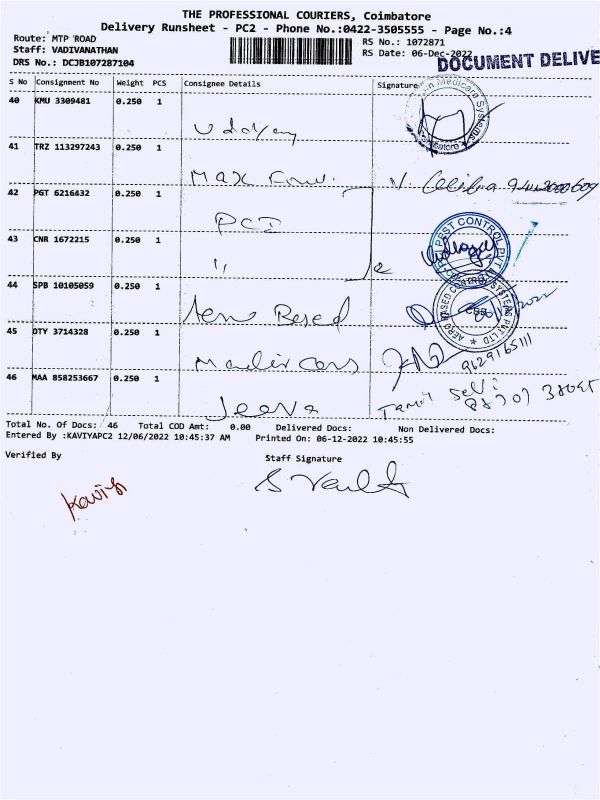 THE PROFESSIONAL COURIERS, Coimbatore
Delivery Runsheet - PC2 - Phone No.:0422-3505555 - Page No.:4
Route: MTP ROAD
RS No.: 1072871
Staff: VADIVANATHAN
RS Date: 06-Dec-2022
DRS No.: DCJB107287104
DOCUMENT DELIVE
S No Consignment No Weight PCS Consignee Details Signature
40 KMU 3309481 0.250 1
41 TRZ 113297243 0.250 1
Max
42 PGT 6216432 0.250 1
PCI
43 CNR 1672215 0.250 1
"
PEST CONTROL PVT
44 SPB 10105059 0.250 1
AERO BASED CONTROL SYSTEMS PVT LTD
45 DTY 3714328 0.250 1
9629165111
46 MAA 858253667 0.250 1
Jeeva
Tamil Selvi
Total No. Of Docs: 46 Total COD Amt: 0.00 Delivered Docs: Non Delivered Docs:
Entered By :KAVIYAPC2 12/06/2022 10:45:37 AM Printed On: 06-12-2022 10:45:55
Verified By Staff Signature
Kaviya